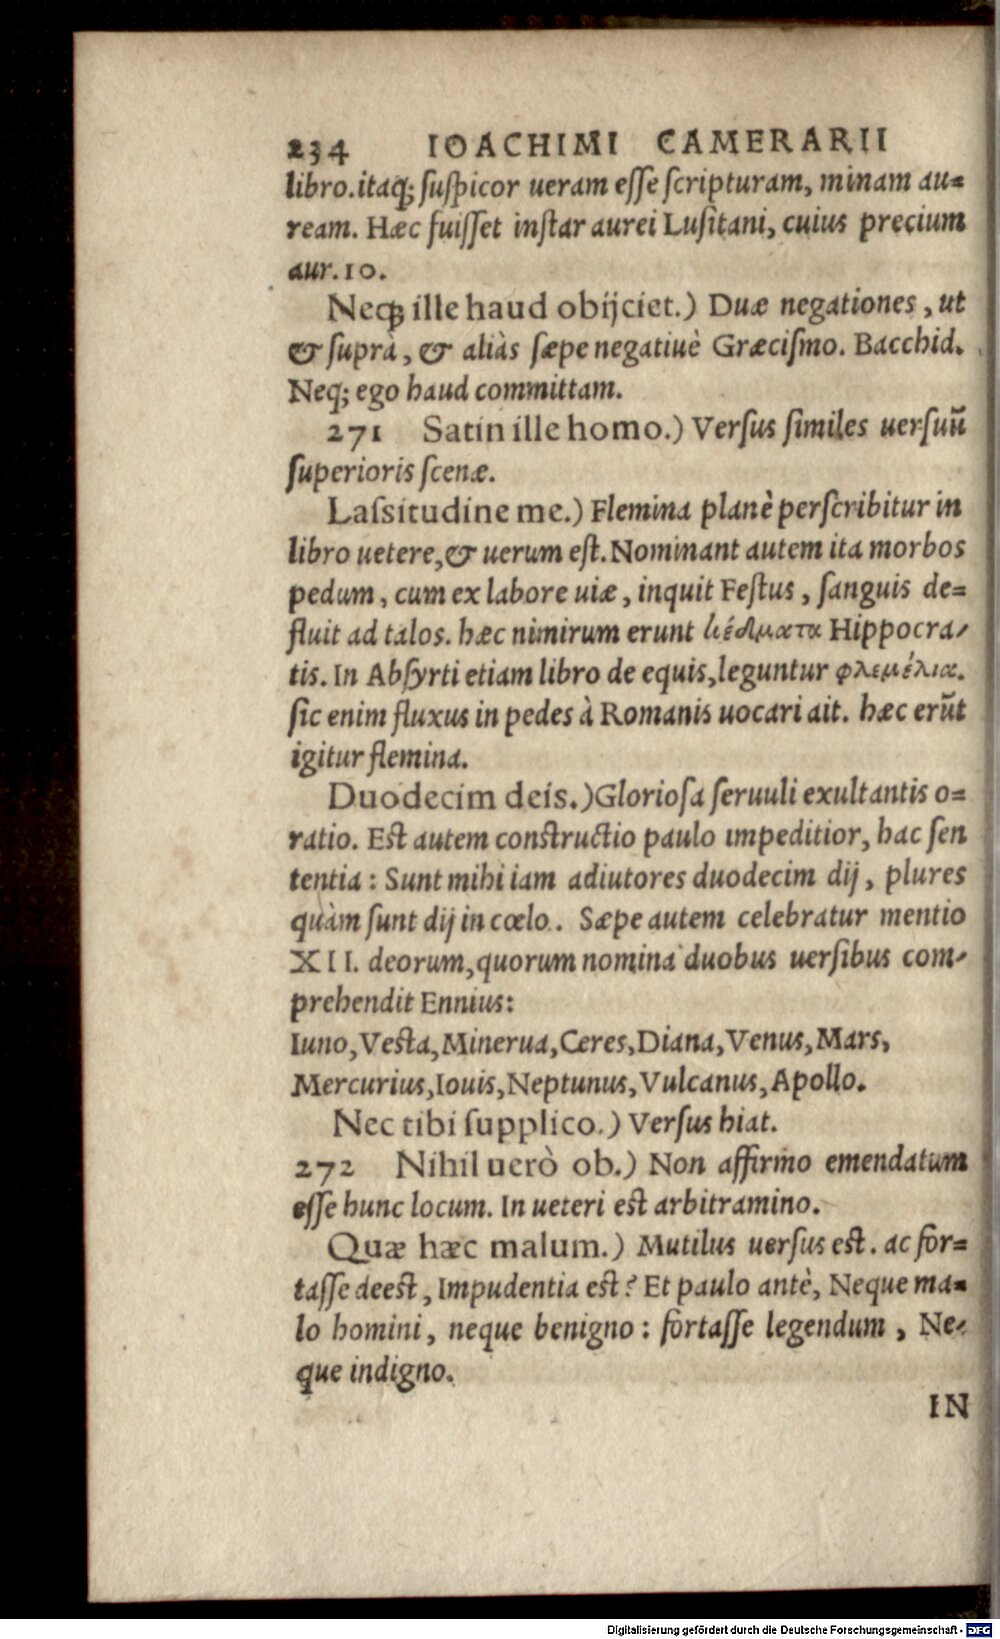 234 IOACHIMI CAMERARII
libro.itaq; suspicor ueram esse scripturam, minam au=
ream. Hæc fuisset instar aurei Lusitani, cuius precium
aur.10.
Neq; ille haud obijciet.) Duæ negationes, ut
& suprà, & aliàs sæpe negatiuè Græcismo. Bacchid.
Neq; ego haud committam.
271 Satin ille homo.) Versus similes uersuū
superioris scenæ.
Lassitudine me.) Flemina planè perscribitur in
libro uetere,& uerum est. Nominant autem ita morbos
pedum, cum ex labore uiæ, inquit Festus, sanguis de=
fluit ad talos. hæc nimirum erunt κέδματα Hippocra-
tis. In Absyrti etiam libro de equis,leguntur φλεμέλια.
sic enim fluxus in pedes à Romanis uocari ait. hæc erūt
igitur flemina.
Duodecim deis.)Gloriosa seruuli exultantis o=
ratio. Est autem constructio paulo impeditior, hac sen
tentia: Sunt mihi iam adiutores duodecim dij, plures
quàm sunt dij in cœlo. Sæpe autem celebratur mentio
XII. deorum,quorum nomina duobus uersibus com-
prehendit Ennius:
Iuno,Vesta,Minerua,Ceres,Diana,Venus,Mars,
Mercurius,Iouis,Neptunus,Vulcanus,Apollo.
Nec tibi supplico.) Versus hiat.
272 Nihil uerò ob.) Non affirmo emendatum
esse hunc locum. In ueteri est arbitramino.
Quæ hæc malum.) Mutilus uersus est. ac for=
tasse deest, Impudentia est? Et paulo antè, Neque ma=
lo homini, neque benigno: fortasse legendum, Ne-
que indigno.
IN
Digitalisierung gefördert durch die Deutsche Forschungsgemeinschaft - DFG